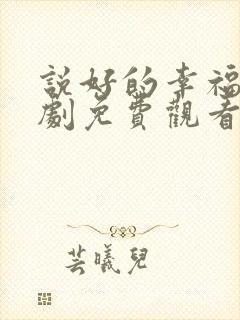 説好的幸福
劇免費觀看
芸曦兒